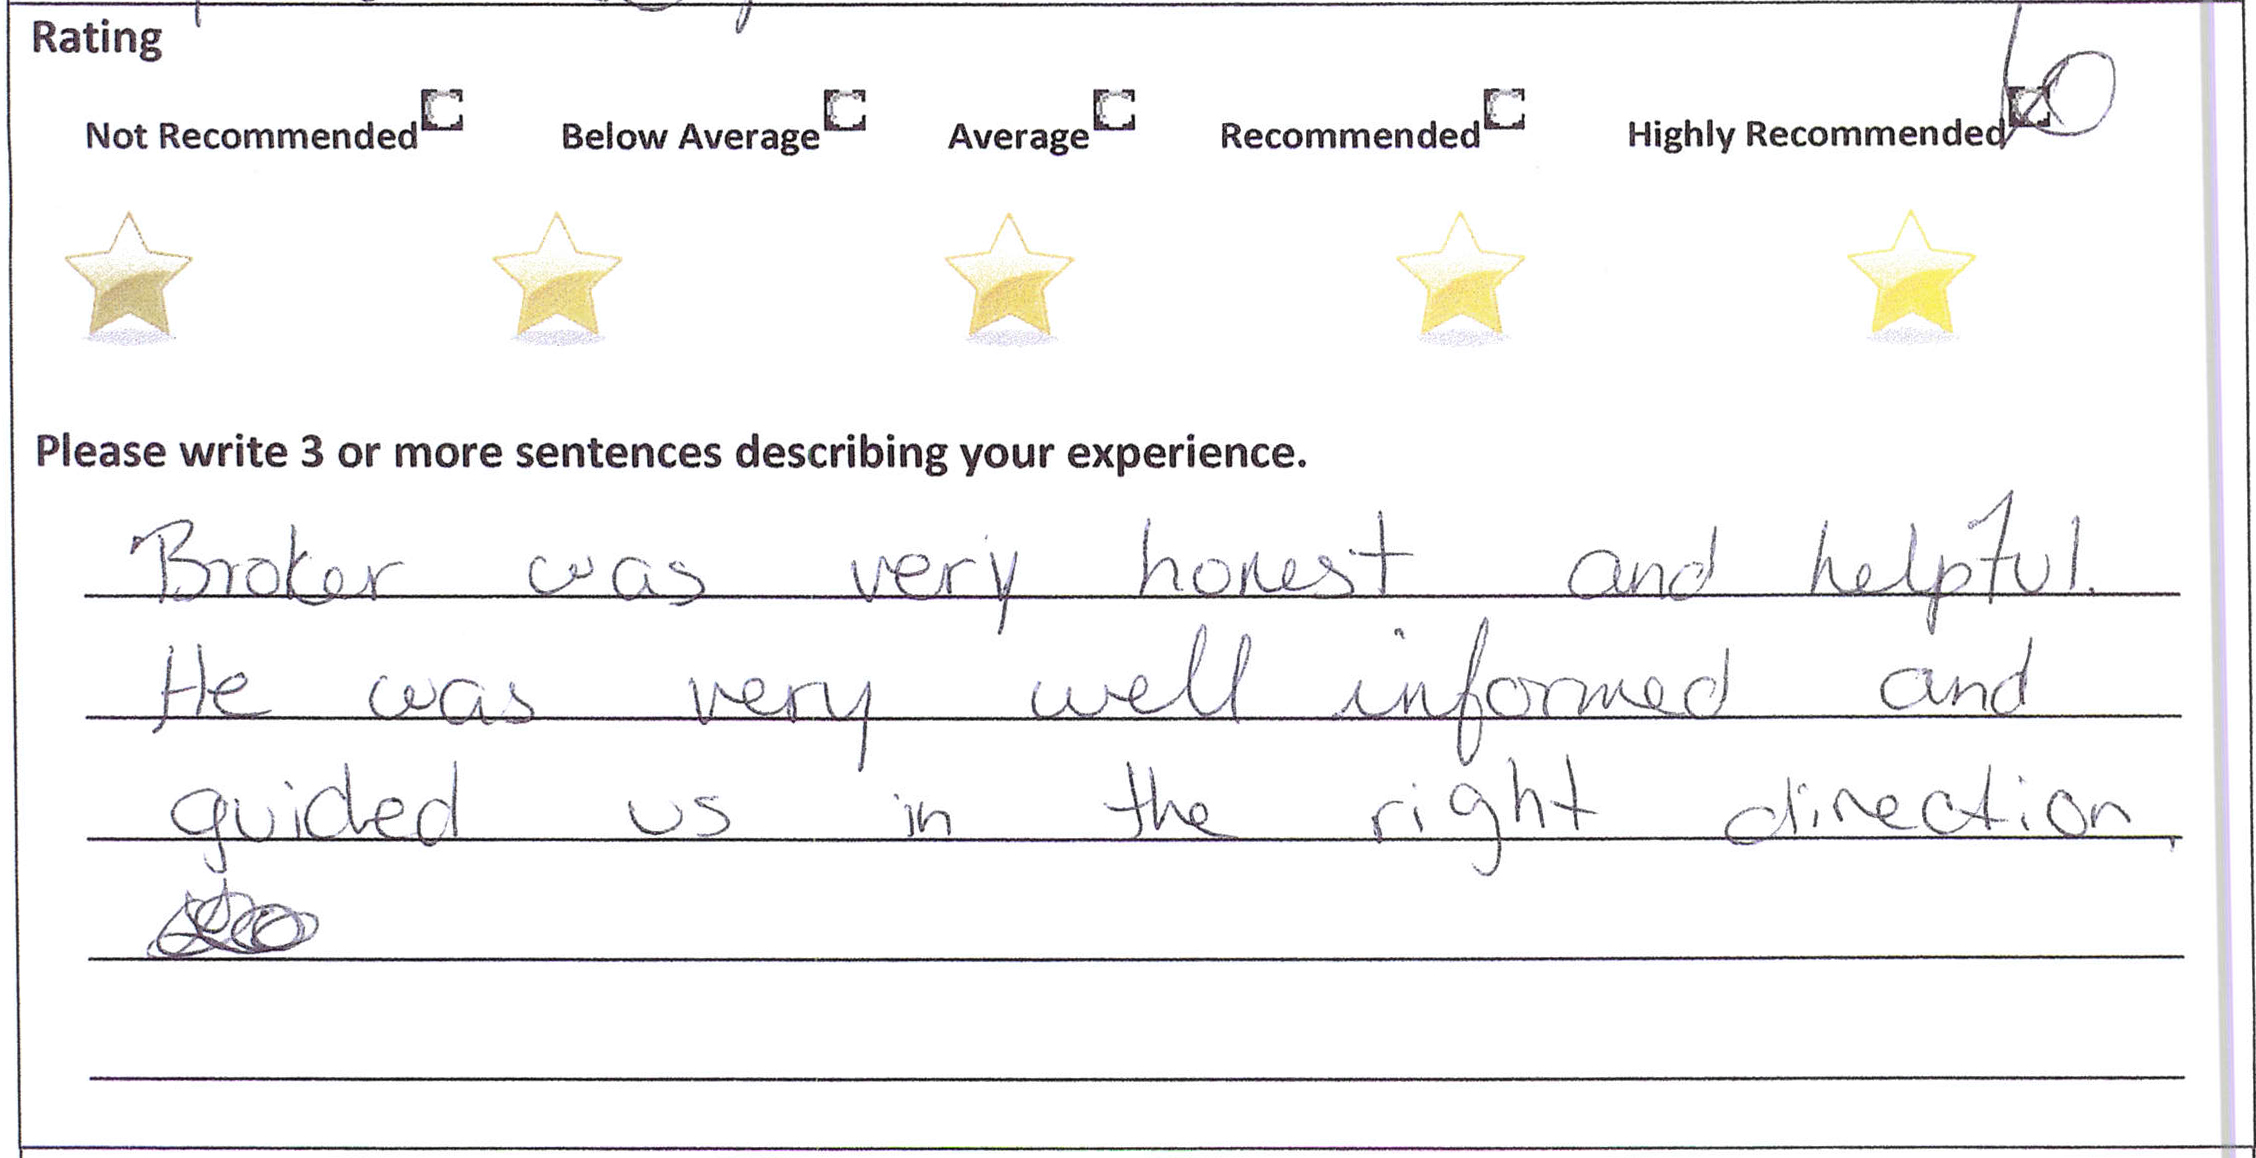 Rating
Not Recommended Below Average Average Recommended Highly Recommended
Please write 3 or more sentences describing your experience.
Broker was very honest and helpful.
He was very well informed and
guided us in the right direction.